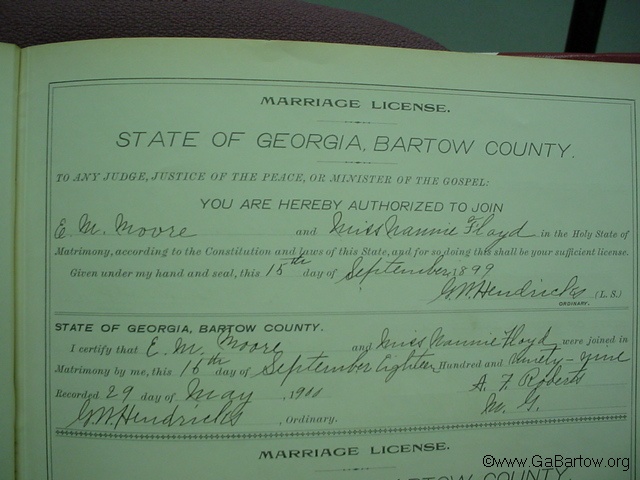 MARRIAGE LICENSE.
STATE OF GEORGIA, BARTOW COUNTY.
TO ANY JUDGE, JUSTICE OF THE PEACE, OR MINISTER OF THE GOSPEL:
YOU ARE HEREBY AUTHORIZED TO JOIN
E. M. Moore and Miss Nannie Floyd in the Holy State of
Matrimony, according to the Constitution and laws of this State, and for so doing this shall be your sufficient license.
Given under my hand and seal, this 15th day of September 1899
G.W. Hendricks (L. S.)
ORDINARY.
STATE OF GEORGIA, BARTOW COUNTY.
I certify that E. M. Moore and Miss Nannie Floyd were joined in
Matrimony by me, this day of September Eighteen Hundred and ninety-nine
Recorded 29 day of May, A. F. Roberts
G.W. Hendricks, Ordinary. M. G.
MARRIAGE LICENSE.
COUNTY.
©www.GaBartow.org